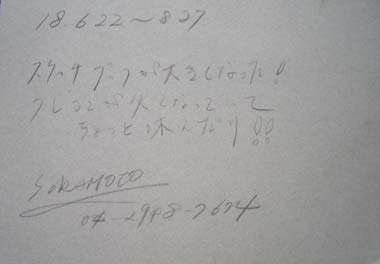 18.6.22～8.27
スケッチブックが大きくなった!
クレヨンが くなっていて
ちょっと休んだり!!
SAKAMOTO
04-2948-7674